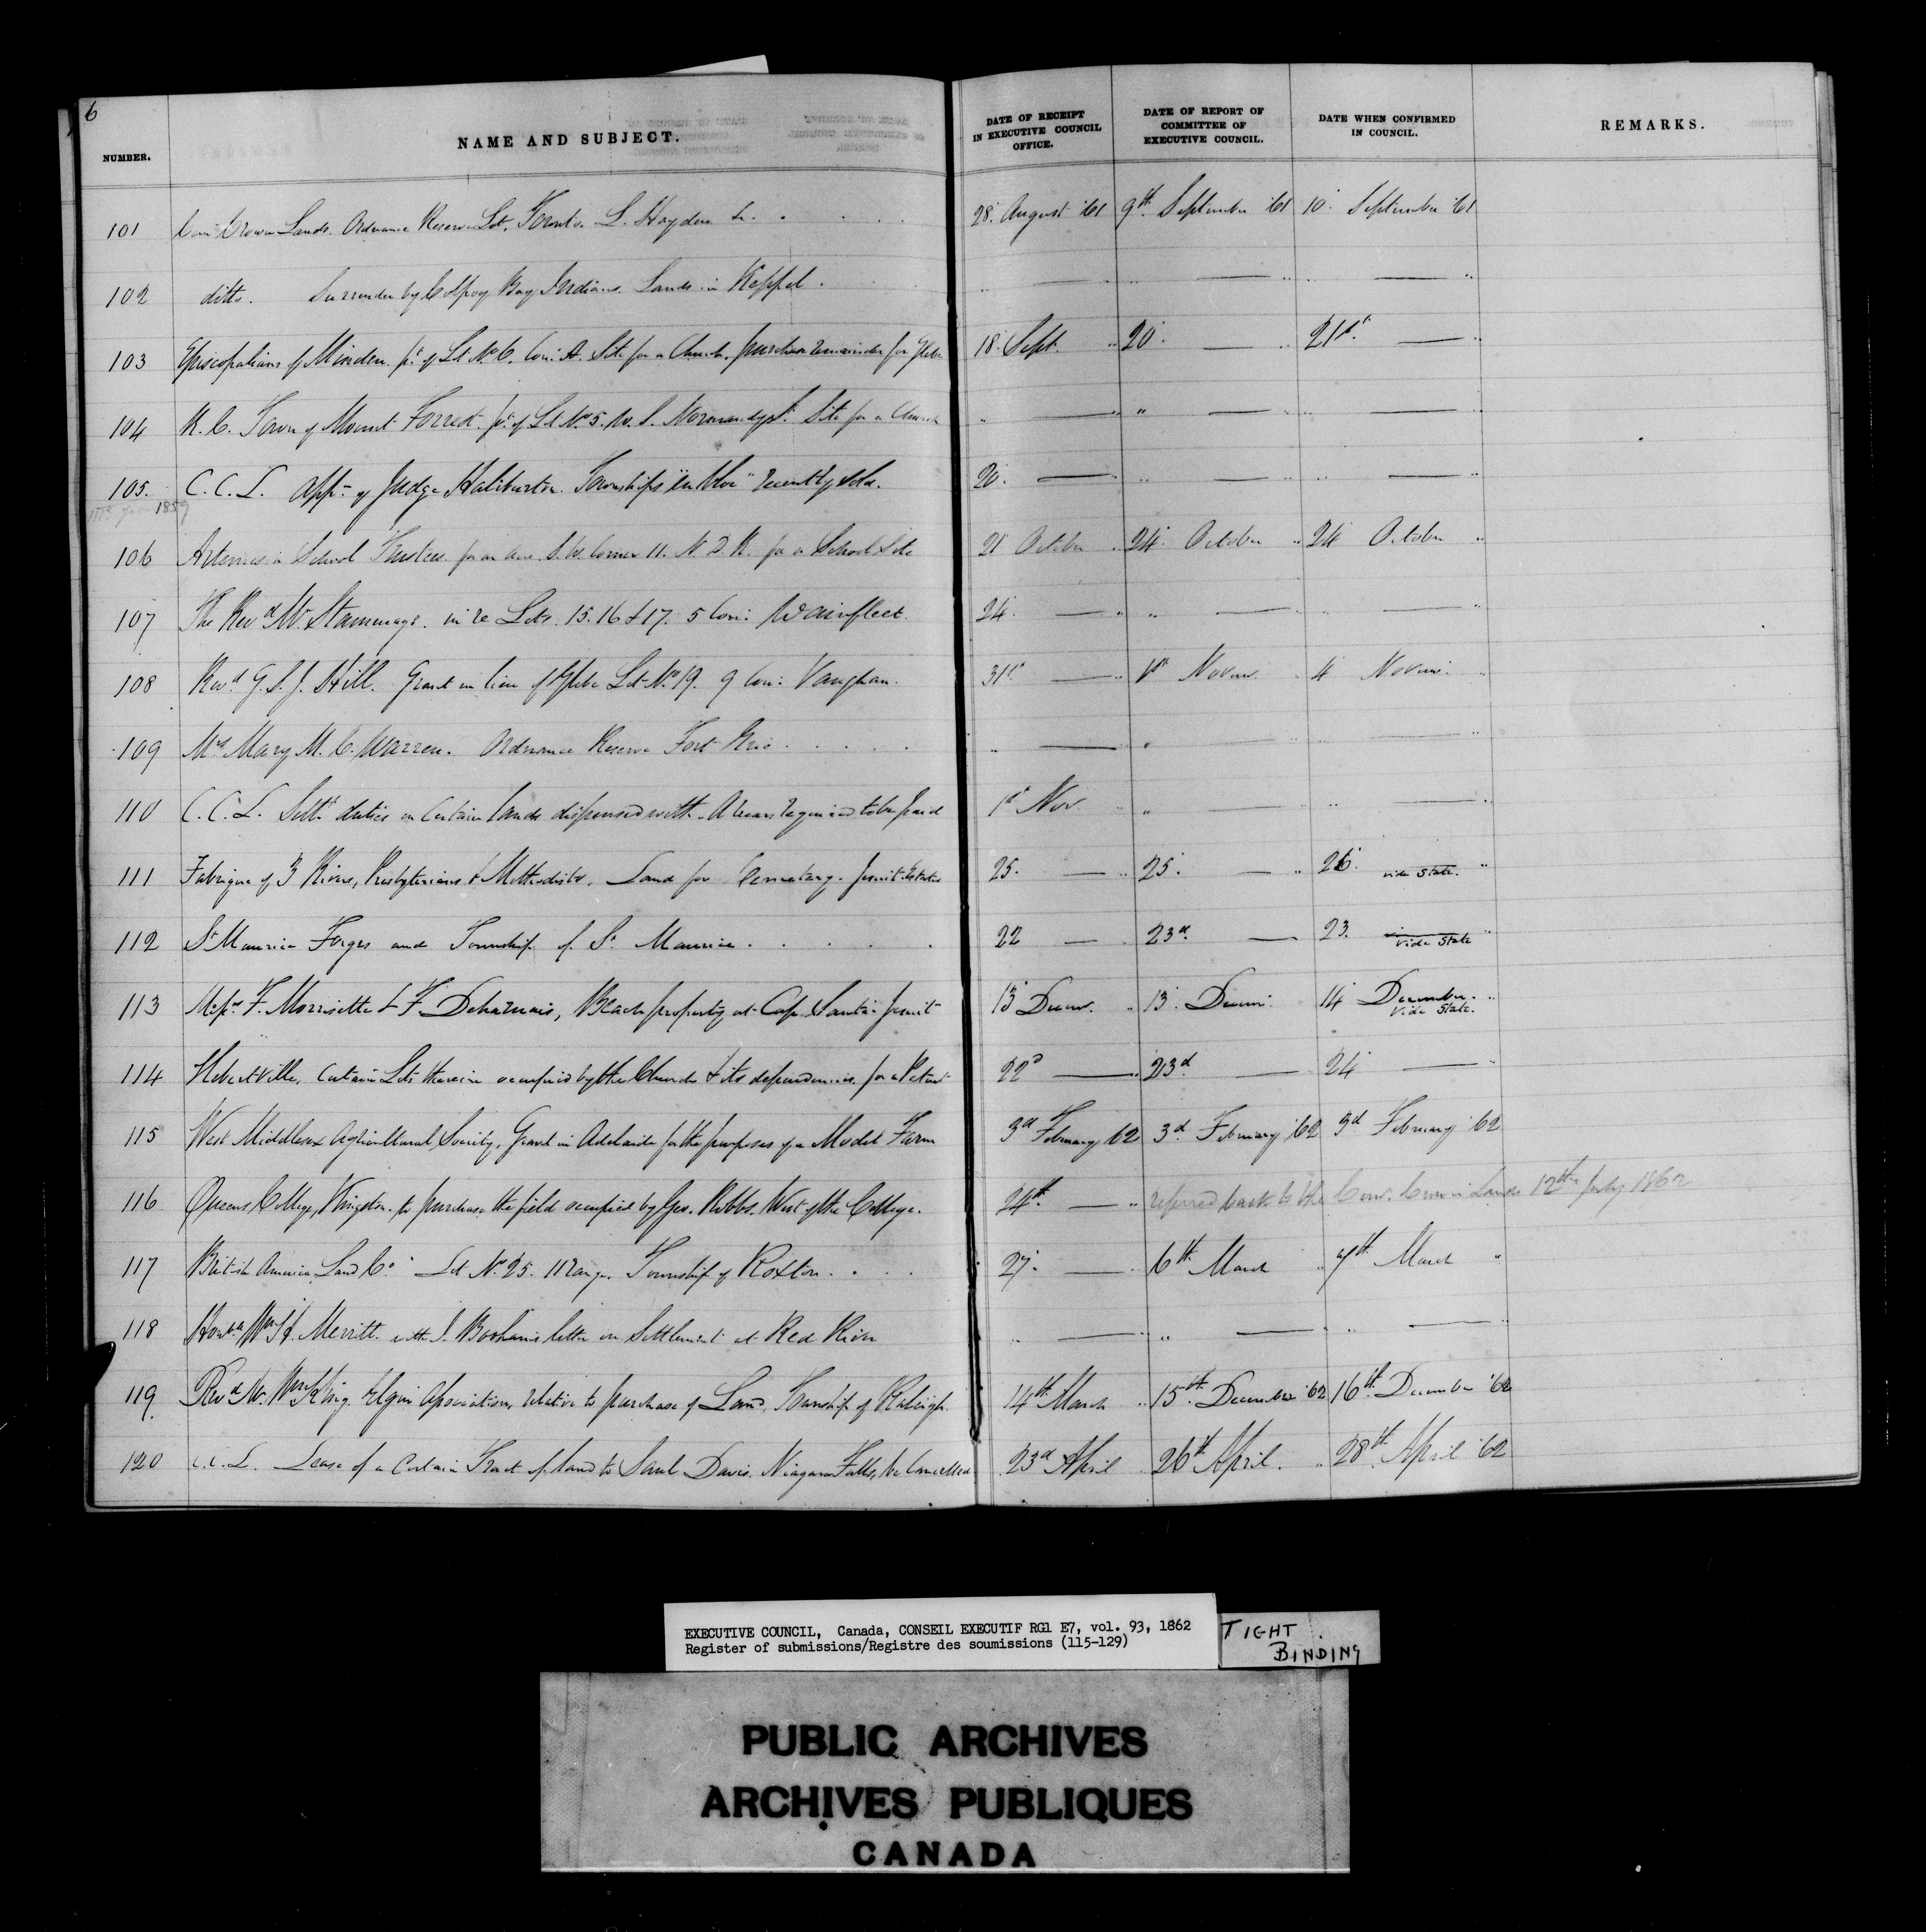 6
NUMBER. NAME AND SUBJECT. DATE OF RECEIPT IN EXECUTIVE COUNCIL OFFICE. DATE OF REPORT OF COMMITTEE OF EXECUTIVE COUNCIL. DATE WHEN CONFIRMED IN COUNCIL. REMARKS.
101 Crown Lands. Ordnance Reserve Lot, Toronto. L. Hayden 28. August '61 9th. September '61 10. September '61
102 ditto. Surrender by Colpoy Bay Indians. Lands in Keppel. " — " " — " " — "
103 Episcopalians of Minden. pt. of Lt No. 6. Con: A. Site for a Church, purchase remainder for Glebe 18. Sept. " 20. — 21st. — "
104 R. C. Town of Mount Forrest. pt. of Lt No. 5. W. S. Normanby St. Site for a Church " — " " — " " — "
105. C. C. L. appt. of Judge Haliburton. Townships "en bloc" recently sold. 20. — " " — " " — "
1859
106 Artemesia School Trustees for an acre S. W. Corner 11. N. D. R. for a School Site 21 October " 24. October " 24 October "
107 The Revd. W. Stammage. in re Lots. 15. 16 & 17. 5 Con: Wainfleet. 24. — " " — " " — "
108 Revd. G. S. J. Hill. Grant in lieu of Glebe Lot No. 19. 9 Con: Vaughan. 31st. — " 1st Novem. " 4 Novem: "
109 Mrs Mary M. C. Warren. Ordnance Reserve Fort Erie . . . . . " — " " " — "
110 C. C. L. Settt. duties on Certain lands dispensed with. Arrears required to be paid 1st Nov " " — " " — "
111 Fabrique of 3 Rivers, Presbyterians & Methodists. Land for Cemetery. Jesuit Estates 25. — " 25. — " 26. vide State. "
112 St Maurice Forges and Township of St. Maurice . . . . . 22 — " 23d. — 23. vide State "
113 F. Morrisette & F. Deharnais, Beach property at Cap Santé. Jesuit 13 Decem. " 13. Decem: 14 December. "
vide State.
114 Hebertville, Certain Lots therein occupied by the Church & its dependencies for a Patent 22d — " 23d — 24 — "
115 West Middlesex Agricultural Society, Grant in Adelaide for the purposes of a Model Farm 3d February 62 3d. February '62 3d February '62
116 Queens College, Kingston. to purchase the field occupied by Geo. Hobbs. West of the College. 24th. — " referred back to the Com. Crown Lands 12th July 1862
117 British America Land Co. Lot No. 25. 11 range. Township of Roxton . . . 27. — " 6th March " 7th March "
118 Honble Wm H. Merritt. with letter on Settlement at Red River " — " " — " " — "
119 Revd. Wm King Elgin Association, relative to purchase of Land, Township of Raleigh. 14th March " 15th. December '62 16th December '62
120 C. C. L. Lease of a Certain Tract of land to Saul Davis. Niagara Falls, be Cancelled 23d April " 26th April. " 28th April '62
EXECUTIVE COUNCIL, Canada, CONSEIL EXECUTIF RG1 E7, vol. 93, 1862
Register of submissions/Registre des soumissions (115-129)
TIGHT
BINDING
PUBLIC ARCHIVES
ARCHIVES PUBLIQUES
CANADA